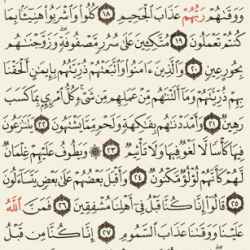 وَوَقَىٰهُمْ رَبُّهُمْ عَذَابَ ٱلْجَحِيمِ ١٨ كُلُوا۟ وَٱشْرَبُوا۟ هَنِيٓـًٔۢا بِمَا
كُنتُمْ تَعْمَلُونَ ١٩ مُتَّكِـِٔينَ عَلَىٰ سُرُرٍ مَّصْفُوفَةٍ وَزَوَّجْنَٰهُم
بِحُورٍ عِينٍ ٢٠ وَٱلَّذِينَ ءَامَنُوا۟ وَٱتَّبَعَتْهُمْ ذُرِّيَّتُهُم بِإِيمَٰنٍ أَلْحَقْنَا
بِهِمْ ذُرِّيَّتَهُمْ وَمَآ أَلَتْنَٰهُم مِّنْ عَمَلِهِم مِّن شَىْءٍ كُلُّ ٱمْرِئٍۭ بِمَا كَسَبَ
رَهِينٌ ٢١ وَأَمْدَدْنَٰهُم بِفَٰكِهَةٍ وَلَحْمٍ مِّمَّا يَشْتَهُونَ ٢٢ يَتَنَٰزَعُونَ
فِيهَا كَأْسًا لَّا لَغْوٌ فِيهَا وَلَا تَأْثِيمٌ ٢٣ وَيَطُوفُ عَلَيْهِمْ غِلْمَانٌ
لَّهُمْ كَأَنَّهُمْ لُؤْلُؤٌ مَّكْنُونٌ ٢٤ وَأَقْبَلَ بَعْضُهُمْ عَلَىٰ بَعْضٍ يَتَسَآءَلُونَ
٢٥ قَالُوٓا۟ إِنَّا كُنَّا قَبْلُ فِىٓ أَهْلِنَا مُشْفِقِينَ ٢٦ فَمَنَّ ٱللَّهُ
عَلَيْنَا وَوَقَىٰنَا عَذَابَ ٱلسَّمُومِ ٢٧ إِنَّا كُنَّا مِن قَبْلُ